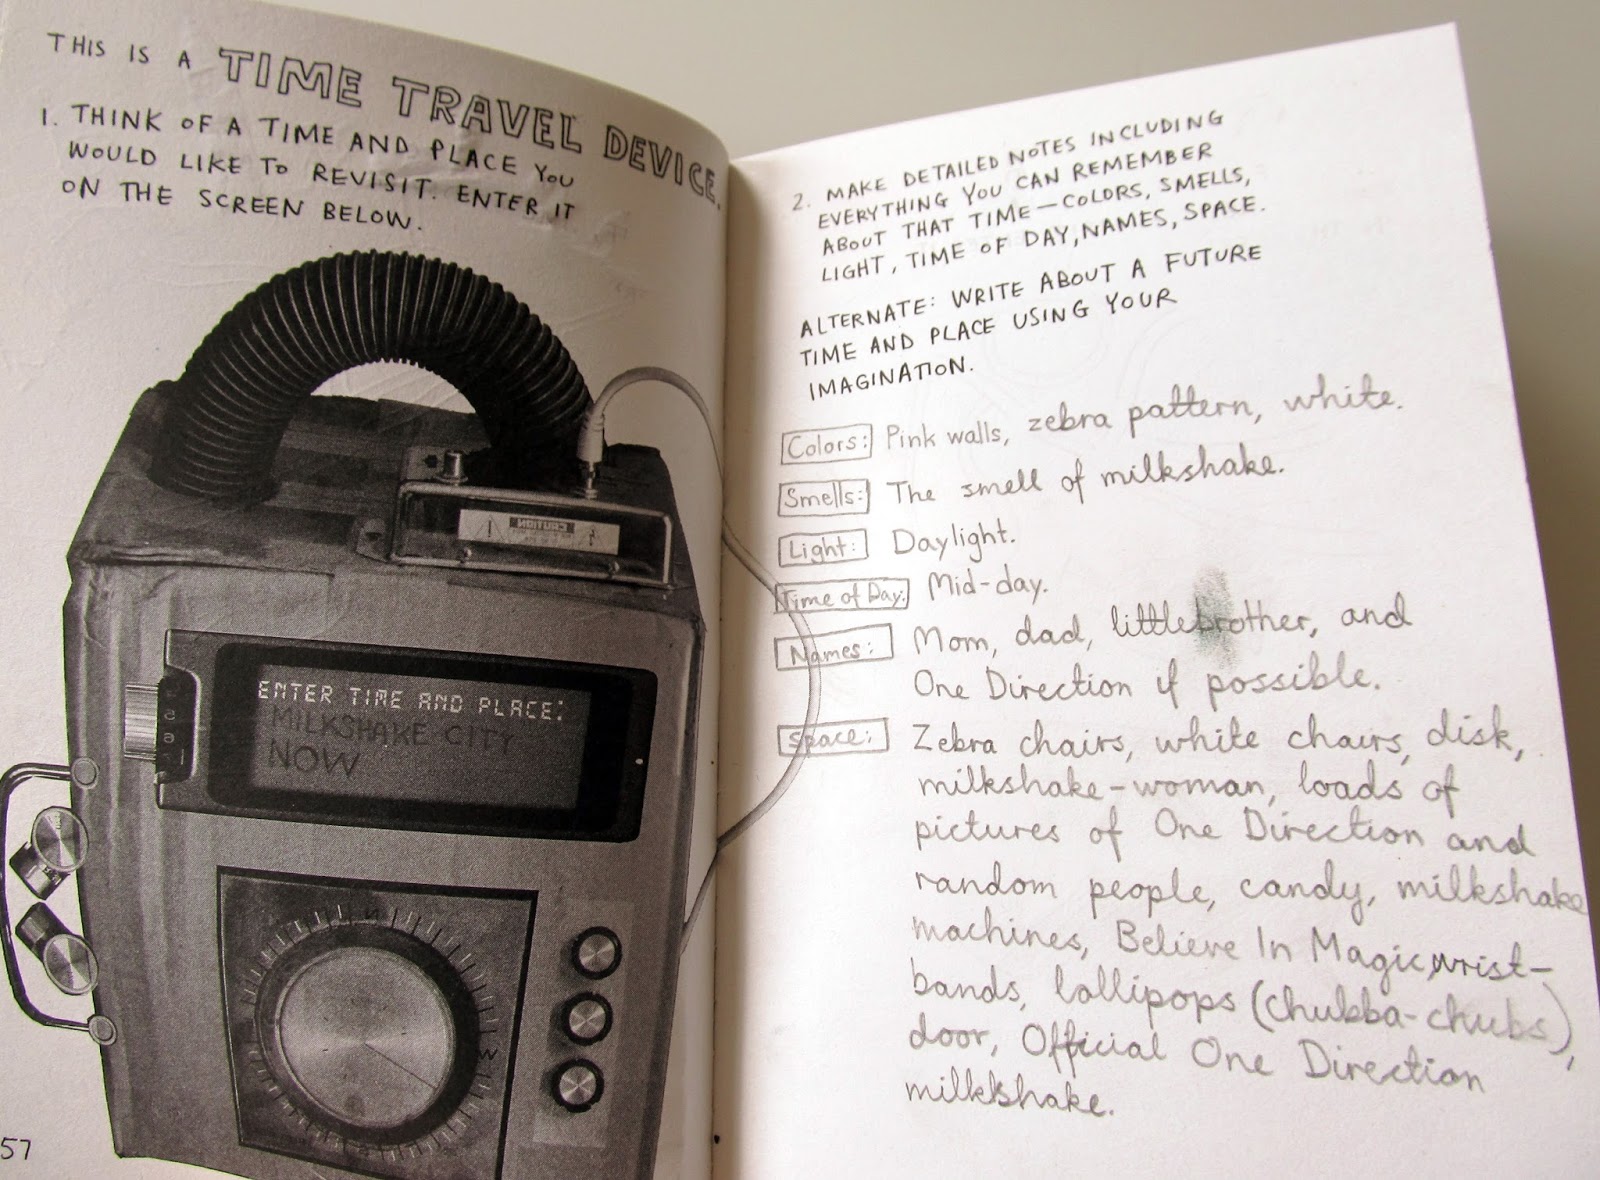 THIS IS A TIME TRAVEL DEVICE.
1. THINK OF A TIME AND PLACE YOU
WOULD LIKE TO REVISIT. ENTER IT
ON THE SCREEN BELOW.
CAUTION
ENTER TIME AND PLACE:
MILKSHAKE CITY
NOW
W
57
2. MAKE DETAILED NOTES INCLUDING
EVERYTHING YOU CAN REMEMBER
ABOUT THAT TIME—COLORS, SMELLS,
LIGHT, TIME OF DAY, NAMES, SPACE.
ALTERNATE: WRITE ABOUT A FUTURE
TIME AND PLACE USING YOUR
IMAGINATION.
Colors: Pink walls, zebra pattern, white.
Smells: The smell of milkshake.
Light: Daylight.
Time of Day: Mid-day.
Names: Mom, dad, little brother, and
One Direction if possible.
Space: Zebra chairs, white chairs, disk,
milkshake-woman, loads of
pictures of One Direction and
random people, candy, milkshake
machines, Believe In Magic wrist-
bands, lollipops (chubba-chubs),
door, Official One Direction
milkshake.